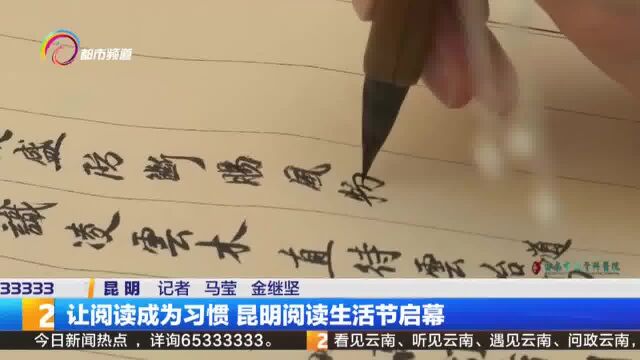 都市频道
盛 斷 腸 風 物
識 凌 雲 木 直 待 雲
33333 昆明 记者 马莹 金继坚
2 让阅读成为习惯 昆明阅读生活节启幕
今日新闻热点，详询65333333。 2 看见云南、听见云南、遇见云南、问政云南，